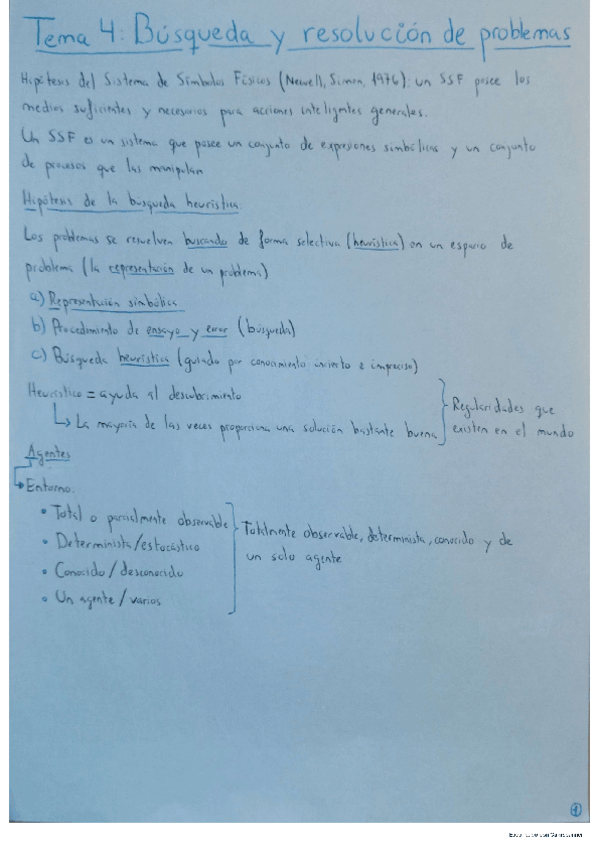 Tema 4: Búsqueda y resolución de problemas
Hipótesis del Sistema de Símbolos Físicos (Newell, Simon, 1976): un SSF posee los
medios suficientes y necesarios para acciones inteligentes generales.
Un SSF es un sistema que posee un conjunto de expresiones simbólicas y un conjunto
de procesos que las manipulan
Hipótesis de la búsqueda heurística.
Los problemas se resuelven buscando de forma selectiva (heurística) en un espacio de
problema (la representación de un problema)
a) Representación simbólica
b) Procedimiento de ensayo y error (búsqueda)
c) Búsqueda heurística (guiado por conocimiento incierto e impreciso)
Heurístico = ayuda al descubrimiento
La mayoría de las veces proporciona una solución bastante buena
Regularidades que
existen en el mundo
Agentes
Entorno:
• Total o parcialmente observable
• Determinista/estocástico
• Conocido / desconocido
• Un agente / varios
Totalmente observable, determinista, conocido y de
un solo agente
1